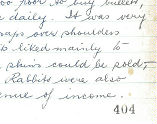 too poor to buy bullets,
e daily. It was very
raps over shoulders
liked mainly to
skins could be sold,
Rabbits were also
ence of income.
404